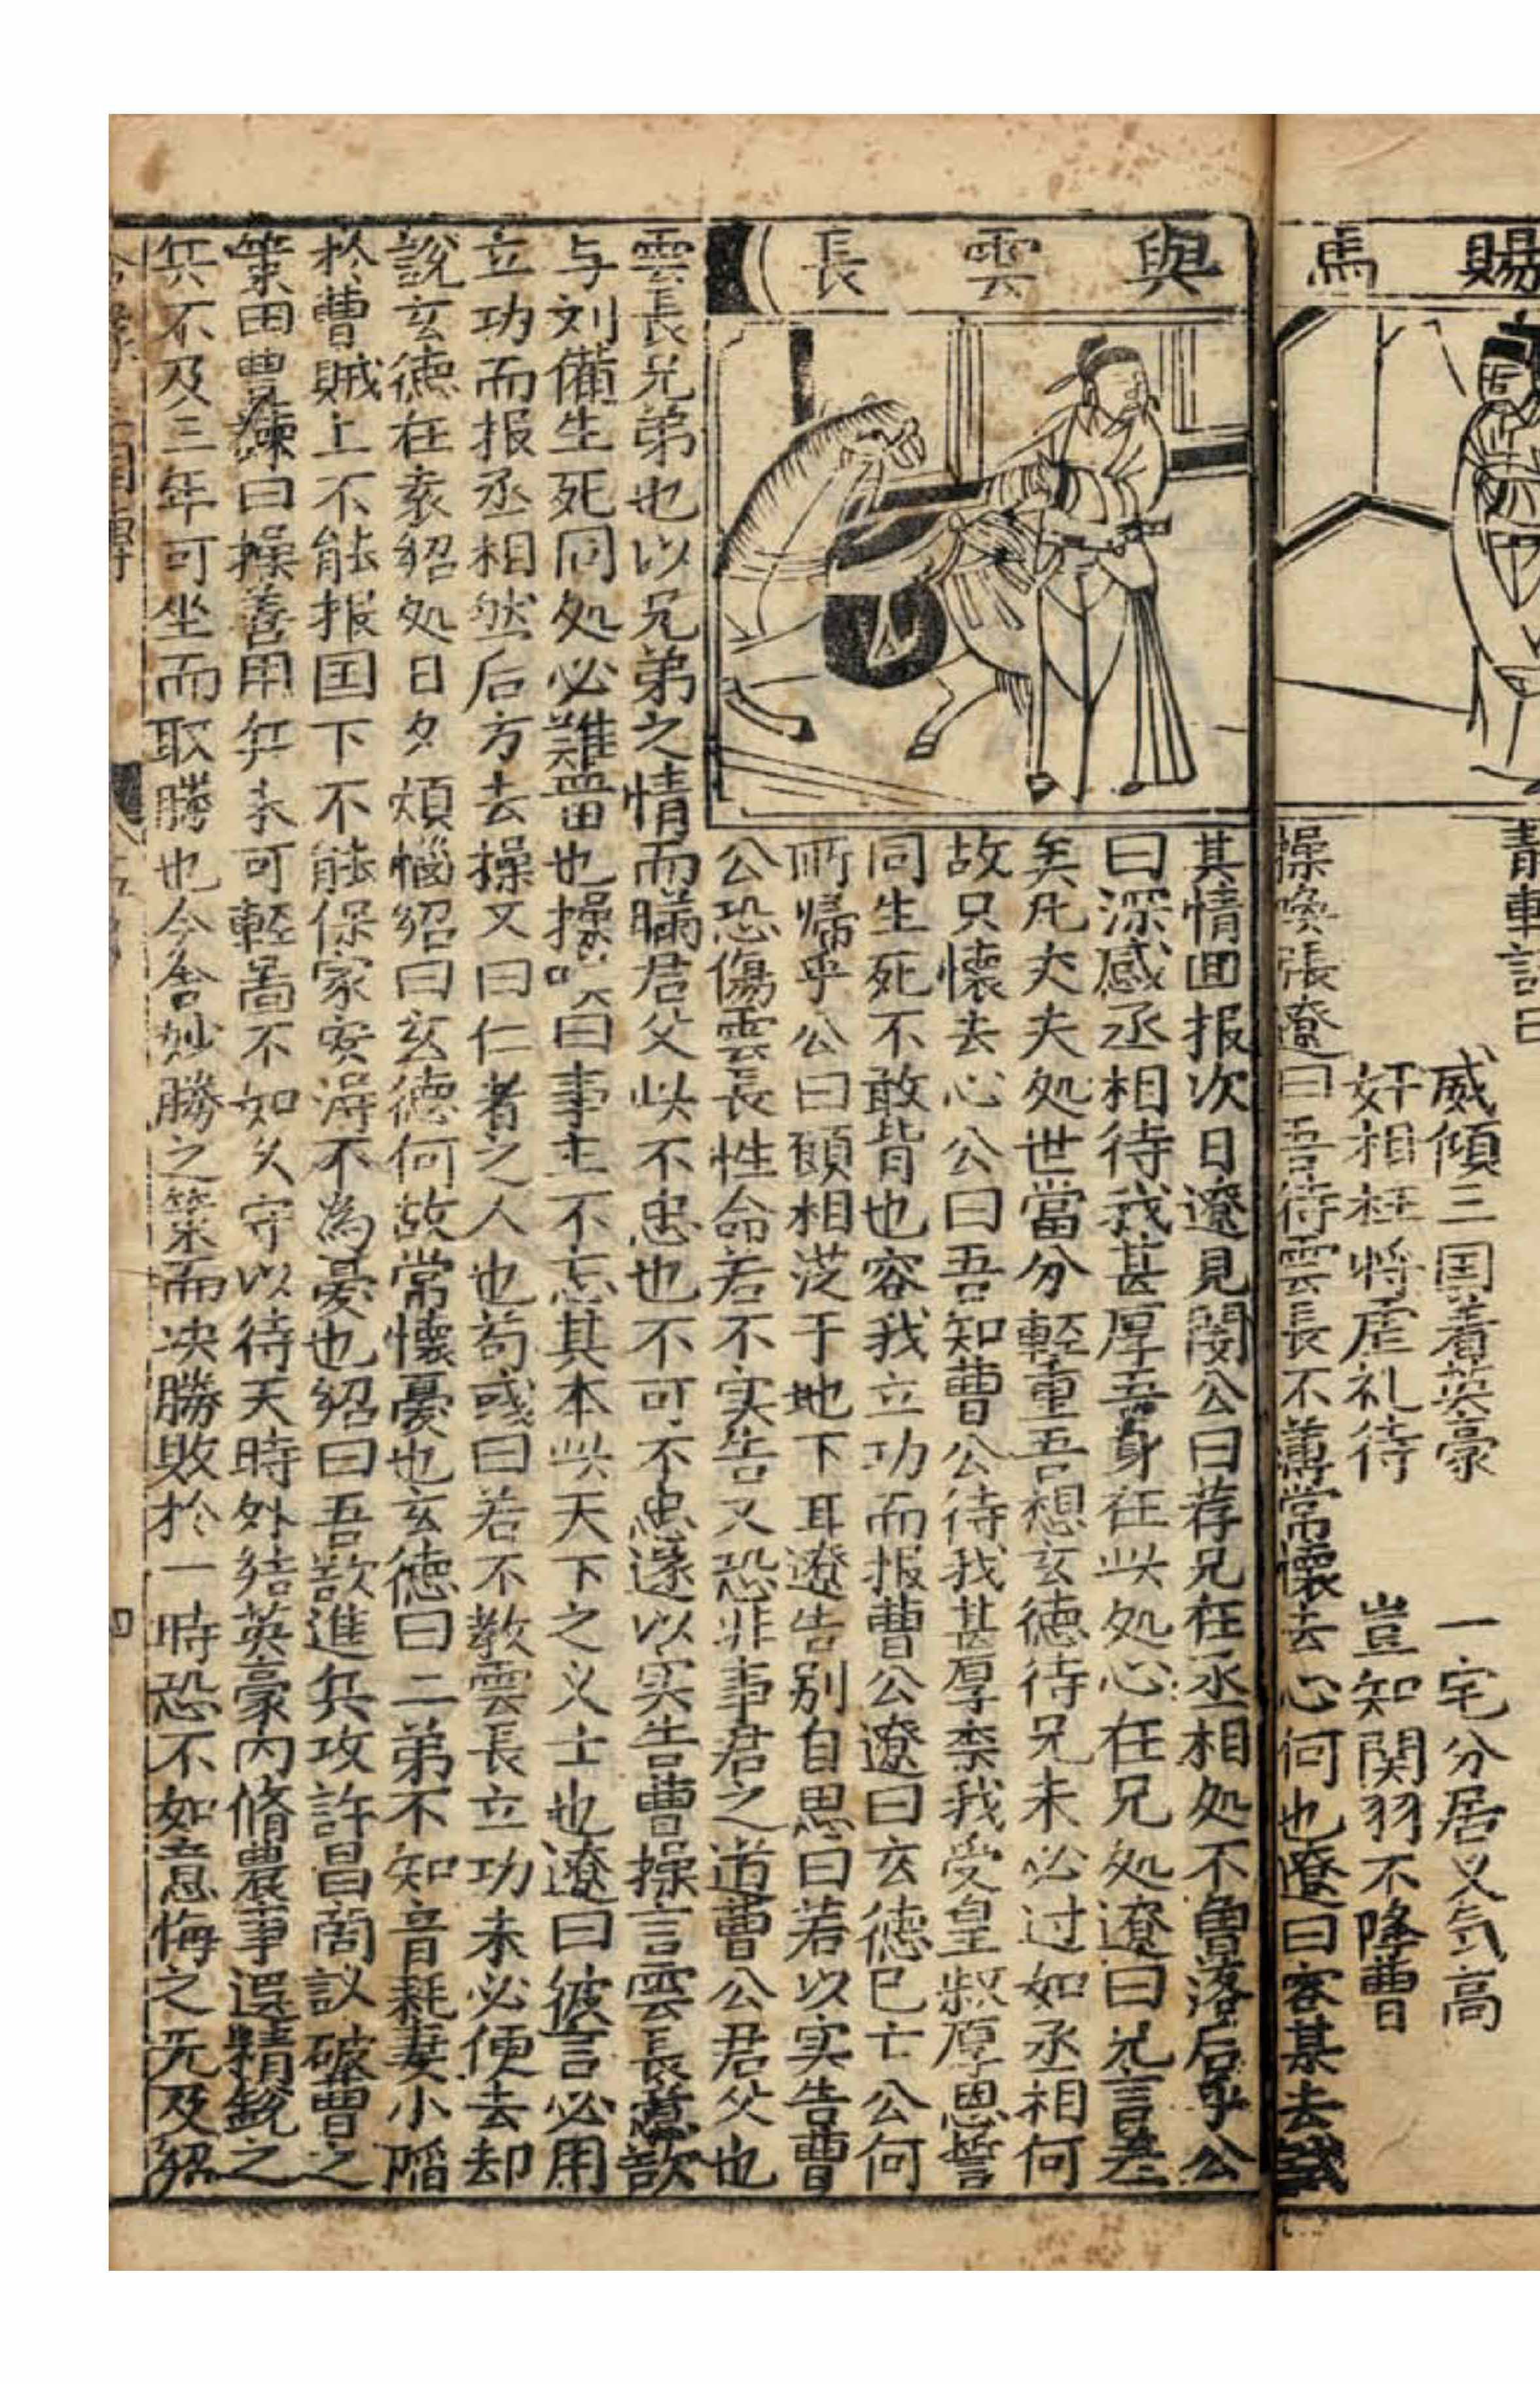 賜馬
與雲長
青
威傾三国着英豪 一宅分居义気高
奸相枉将虛礼待 豈知関羽不降曹
操喚張遼曰吾待雲長不薄常懷去心何也遼曰容某去
其情囬报次日遼見関公曰荐兄在丞相処不曾落后乎公
曰深感丞相待我甚厚吾身在此処心在兄処遼曰兄言差
矣凡丈夫処世當分輕重吾想玄德待兄未必过如丞相何
故只懷去心公曰吾知曹公待我甚厚柰我受皇叔厚恩誓
同生死不敢背也容我立功而报曹公遼曰玄德已亡公何
所歸乎公曰願相從于地下耳遼告别自思曰若以实告曹
公恐傷雲長性命若不实告又恐非事君之道曹公君父也
雲長兄弟也以兄弟之情而瞞君父此不忠也不可不忠遂以实告曹操言雲長意欲
与刘備生死同処必難畱也操曰事主不忘其本此天下之义士也遼曰彼言必用
立功而报丞相然后方去操又曰仁者之人也荀彧曰若不教雲長立功未必便去却
說玄德在袁紹処日夕煩惱紹曰玄德何故常懷憂也玄德曰二弟不知音耗妻小陷
於曹賊上不能报国下不能保家安得不為憂也紹曰吾欲進兵攻許昌商议破曹之
策田豊諫曰操善用兵未可輕啚不如久守以待天時外結英豪内脩農事選精銳之
兵不及三年可坐而取勝也今舍妙勝之策而决勝敗於一時恐不如意悔之无及紹